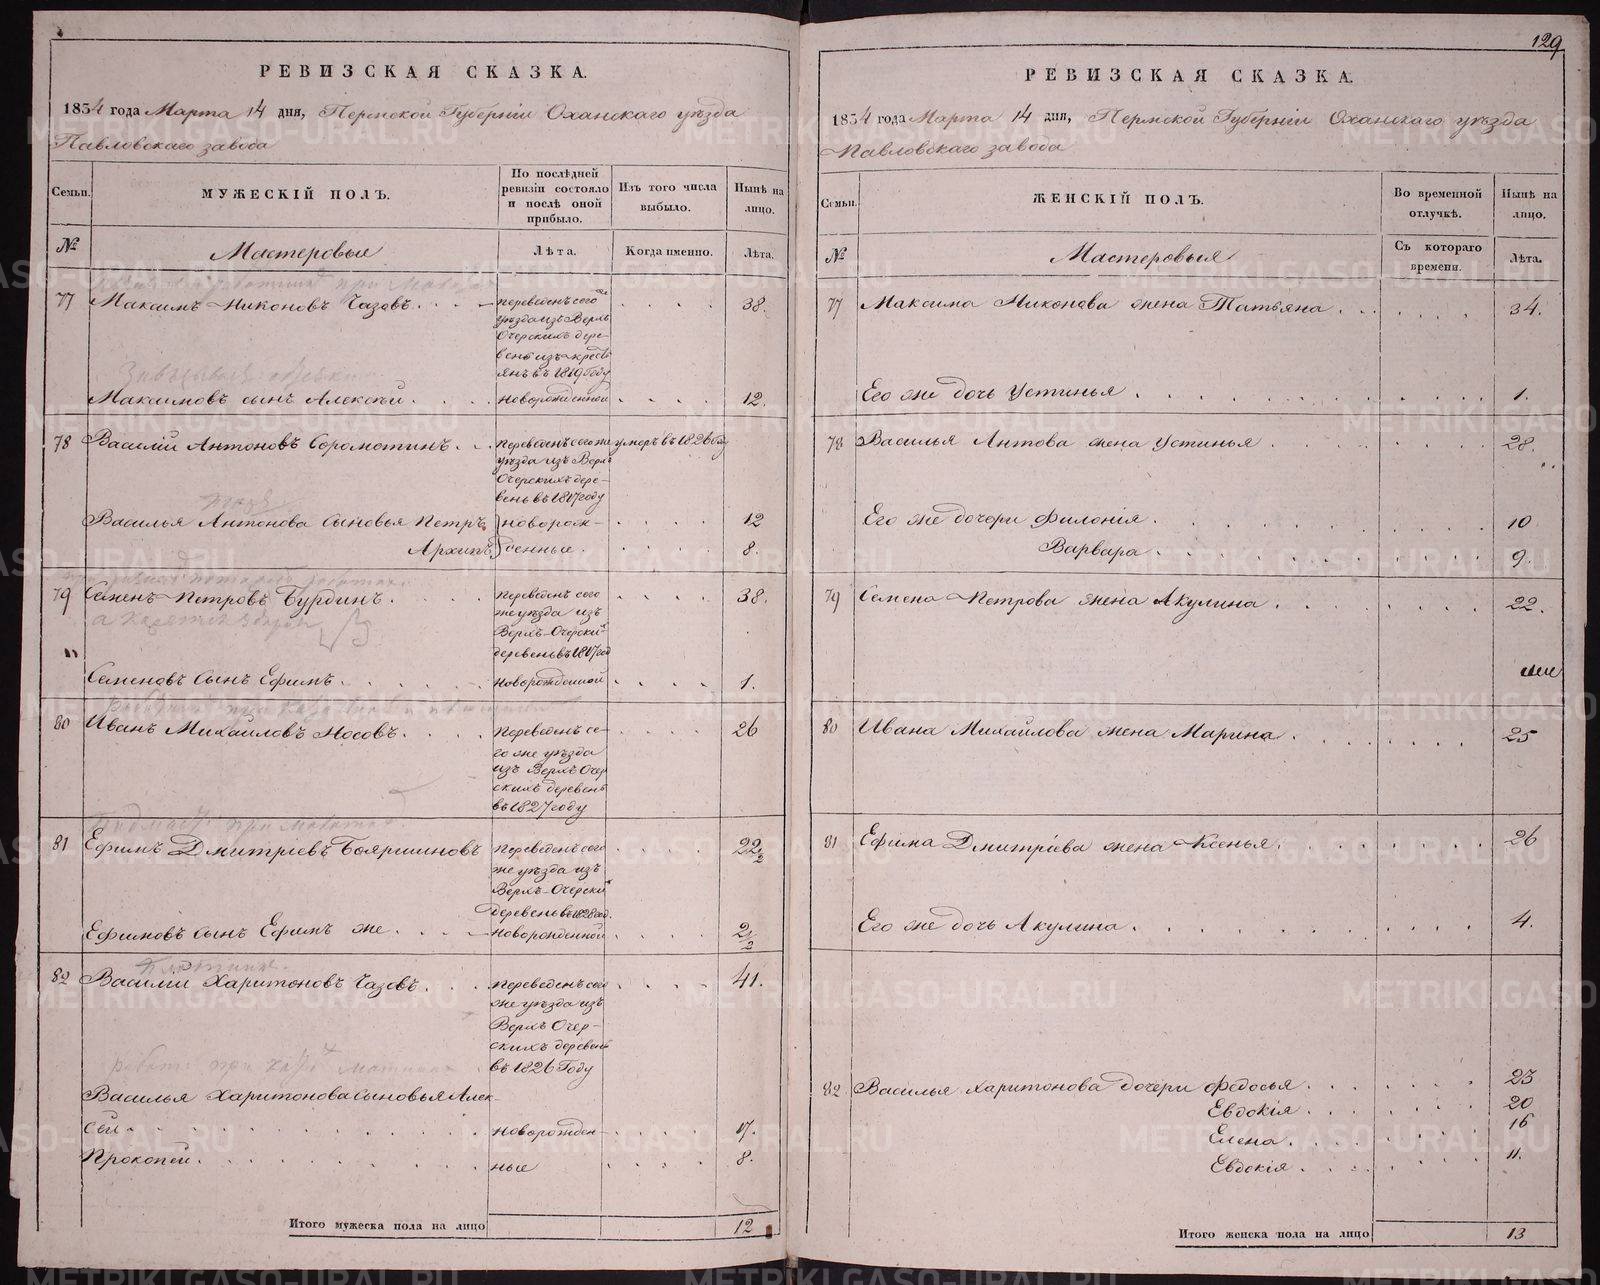 РЕВИЗСКАЯ СКАЗКА.
1834 года Марта 14 дня, Пермской Губерніи Оханскаго уѣзда
Павловскаго завода
Семьи.
МУЖЕСКІЙ ПОЛЪ.
По послѣдней
ревизіи состояло
и послѣ оной
прибыло.
Изъ того числа
выбыло.
Нынѣ на
лицо.
№
Мастеровые
Лѣта.
Когда именно.
Лѣта.
77 Максимъ Никоновъ Чазовъ. 38.
переведенъ сего же
уѣзда изъ Верхъ
Очерскихъ дере-
вень изъ кресть
янъ въ 1819 году
Максимовъ сынъ Алексѣй. новорожденной 12.
78 Василій Антоновъ Соромотинъ. переведенъ сего же умеръ въ 1826 году
уѣзда изъ Верхъ
Очерскихъ дере-
вень въ 1817 году
Василья Антонова сыновья Петръ новорож- 12
Архипъ денные. 8.
79 Семенъ Петровъ Бурдинъ. переведенъ сего 38.
же уѣзда изъ
Верхъ-Очерскихъ
деревень въ 1817 год
Семеновъ сынъ Ефимъ. новорожденной 1.
80 Иванъ Михайловъ Носовъ. переведенъ се- 26
го же уѣзда
изъ Верхъ Очер
скихъ деревень
въ 1827 году
81 Ефимъ Дмитріевъ Бояршиновъ переведенъ сего 22 1/2
же уѣзда изъ
Верхъ-Очерски
деревень въ 1828 год.
Ефимовъ сынъ Ефимъ же. новорожденной 2 1/2
82 Василій Харитоновъ Чазовъ. переведенъ сего 41.
же уѣзда изъ
Верхъ Очер-
скихъ деревень
въ 1826 Году
Василья Харитонова сыновья Алек-
сѣй новорожден- 17.
Прокопей. ные 8.
Итого мужеска пола на лицо 12
129
РЕВИЗСКАЯ СКАЗКА.
1834 года Марта 14 дня, Пермской Губерніи Оханскаго уѣзда
Павловскаго завода
Семьи.
ЖЕНСКІЙ ПОЛЪ.
Во временной
отлучкѣ.
Нынѣ на
лицо.
№
Мастеровыя
Съ котораго
времени.
Лѣта.
77 Максима Никонова жена Татьяна 34.
Его же дочь Устинья 1.
78 Василья Антова жена Устинья 28.
Его же дочери Филонія. 10
Варвара 9.
79 Семена Петрова жена Акулина 22.
80 Ивана Михайлова жена Марина 25
81 Ефима Дмитріева жена Ксенья. 26
Его же дочь Акулина 4.
82 Василья Харитонова дочери Федосья 23
Евдокія 20
Елена 16
Евдокія 11.
Итого женска пола на лицо 13
METRIKI.GASO-URAL.RU